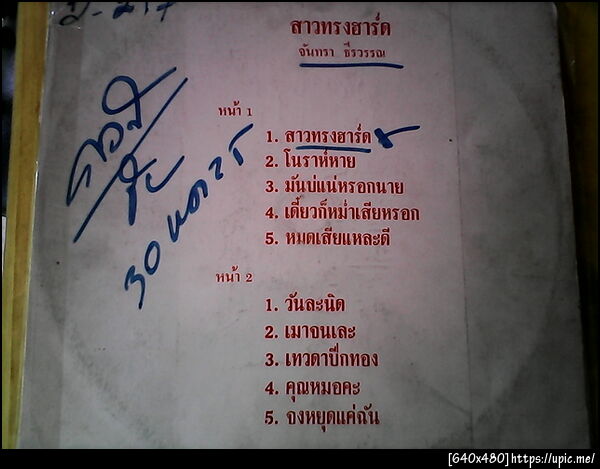 สาวทรงฮาร์ด
จันทรา ธีรวรรณ
หน้า 1
1. สาวทรงฮาร์ด
2. โนราห์หาย
3. มันบ่แน่หรอกนาย
4. เดี๋ยวก็หม่ำเสียหรอก
5. หมดเสียแหละดี
หน้า 2
1. วันละนิด
2. เมาจนเละ
3. เทวดาปีกทอง
4. คุณหมอคะ
5. จงหยุดแค่ฉัน
[640x480]https://upic.me/